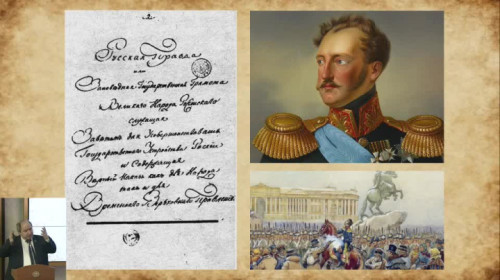 Русская Правда
или
Заповѣдная Государственная Грамота
Великаго Народа Россійскаго
служащая
Завѣтомъ для Усовершенствованія
Государственнаго Устройства Россіи
и Содержащая
Вѣрный Наказъ какъ для Народа
такъ и для
Временнаго Верховнаго Правленія